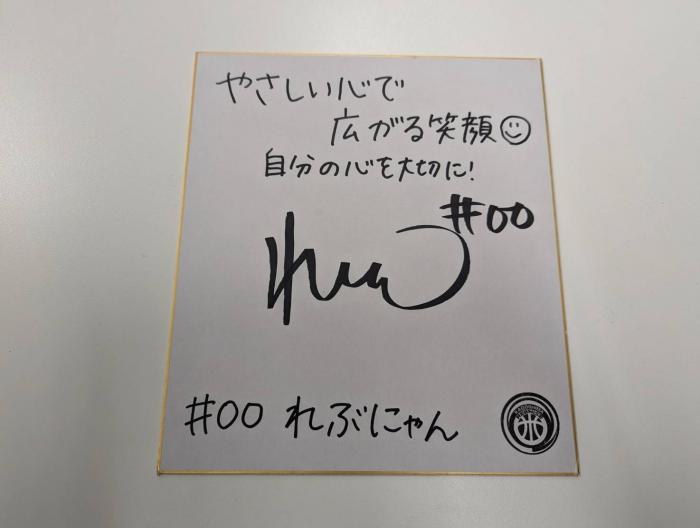 やさしい心で
広がる笑顔
自分の心を大切に!
#00
#00 れぶにゃん